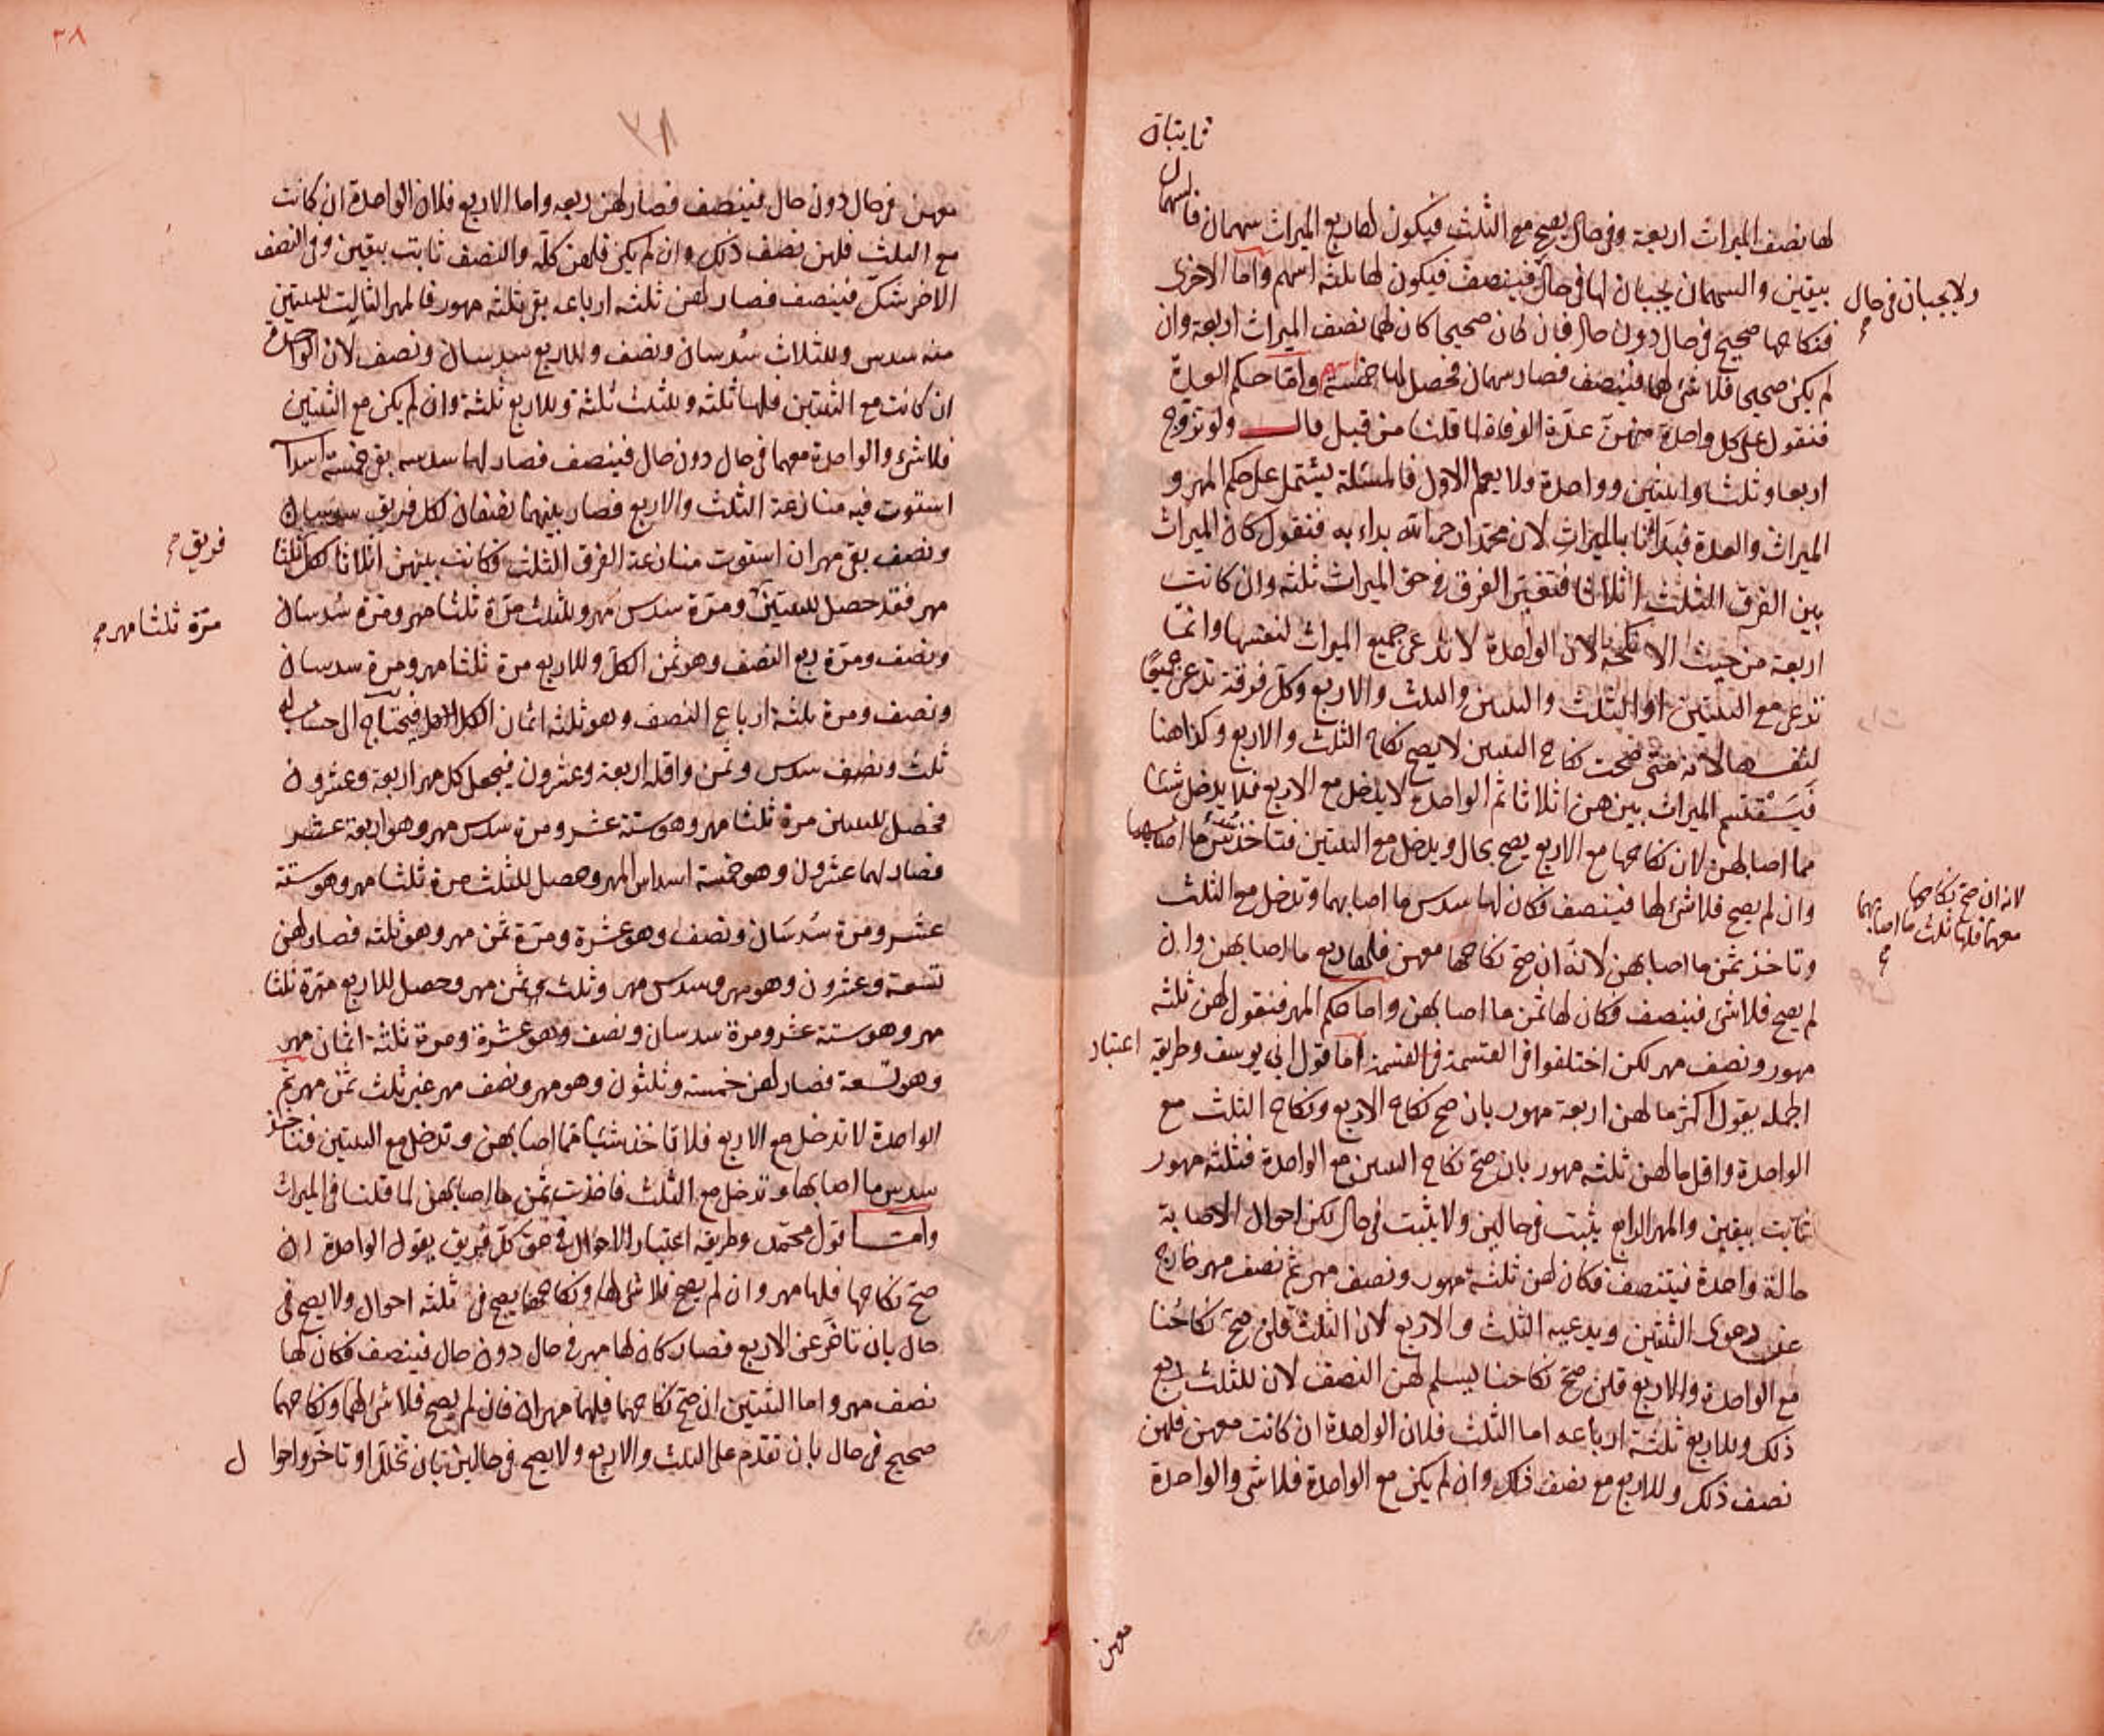 ثابتان
لها نصف الميراث اربعة وفى حال يصح مع الثلث فيكون لها ربع الميراث سهمان فالسهمان
بيقين والسهمان يجبان لها فى حال فينصف فيكون لها ثلثه اسهم واما الاخرى
ولا يجبان فى حال
فنكاحها صحيح فى حال دون حال فان كان صحيحا كان لها نصف الميراث اربعة وان
لم يكن صحيحا فلا شئ لها فينصف فصار سهمان فحصل لها خمسة اسهم واما حكم العدة
فنقول على كل واحدة منهن عدة الوفاة لما قلنا من قبل قال ولو تزوج
اربعا وثلثا واثنتين وواحدة ولا يعلم الاول فالمسئلة يشتمل على حكم المهر و
الميراث والعدة فبدأنا بالميراث لان محمدا رحمه الله بداء به فنقول كان الميراث
بين الفرق الثلث اثلاثا فتعتبر الفرق فى حق الميراث ثلثه وان كانت
اربعة من حيث الانكحة لان الواحدة لا تدعى جميع الميراث لنفسها وانما
تدعى مع الثنتين او الثلث والثنتين والثلث والاربع وكل فرقة تدعى جميعا
لنفسها لانه متى صحت نكاح الثنتين لا يصح نكاح الثلث والاربع وكذا هنا
فيستقسم الميراث بينهن اثلاثا ثم الواحدة لا يدخل مع الاربع فلا يدخل شئا
مما اصابهن لان نكاحها مع الاربع يصح بحال ويدخل مع الثنتين فتاخذ سدس ما اصابهما
لانه ان صح نكاحها
معهما فلها ثلث ما اصابهما
وان لم يصح فلا شئ لها فينصف فكان لها سدس ما اصابهما وتدخل مع الثلث
وتاخذ ثمن ما اصابهن لانه ان صح نكاحها معهن فلها ربع ما اصابهن وان
لم يصح فلا شئ فينصف فكان لها ثمن ما اصابهن واما حكم المهر فنقول لهن ثلثه
مهور ونصف مهر لكن اختلفوا فى القسمة اما قول ابى يوسف وطريقه اعتبار
الجمله يقول اكثر ما لهن اربعة مهور بان صح نكاح الاربع ونكاح الثلث مع
الواحدة واقل ما لهن ثلثه مهور بان صح نكاح الثنتين مع الواحدة فثلثه مهور
ثابت بيقين والمهر الرابع يثبت فى حالين ولا يثبت فى حال لكن احوال الاصابة
حالة واحدة فيتنصف فكان لهن ثلثة مهور ونصف مهر ثم نصف مهر خارج
عن دعوى الثنتين ويدعيه الثلث والاربع لان الثلث قلن صح نكاحنا
مع الواحدة والاربع قلن صح نكاحنا يسلم لهن النصف لان للثلث ربع
ذلك وللاربع ثلثة ارباعه اما الثلث فلان الواحدة ان كانت معهن فلهن
نصف ذلك وللاربع مع نصف ذلك وان لم يكن مع الواحدة فلا شئ والواحدة
معهن
٣٨
٣٨
معهن فى حال دون حال فينصف فصار لهن ربعه واما الاربع فلان الواحدة ان كانت
مع الثلث فلهن نصف ذلك وان لم يكن فلهن كله والنصف ثابت بيقين وفى النصف
الاخر شك فينصف فصار لهن ثلثه ارباعه بقى ثلثه مهور فالمهر الثالث للثنتين
منه سدس وللثلاث سدسان ونصف وللاربع سدسان ونصف لان الواحدة
ان كانت مع الثنتين فلها ثلثه وللثلث ثلثة وللاربع ثلثة وان لم يكن مع الثنتين
فلا شئ والواحدة معهما فى حال دون حال فينصف فصار لهما سدسه بقى خمسة اسداس
استوت فيه منازعة الثلث والاربع فصار بينهما نصفان لكل فريق سدسان
فريق صح
ونصف بقى مهران استوت منازعة الفرق الثلث فكانت بينهن اثلاثا لكل ثلثا
مهر فقد حصل للثنتين ومرة سدس مهر وللثلث مرة ثلثا مهر ومرة سدسان
مرة ثلثا مهر صح
ونصف ومرة ربع النصف وهو ثمن الكل وللاربع مرة ثلثا مهر ومرة سدسان
ونصف ومرة ثلثة ارباع النصف وهو ثلثه اثمان الكل فيحتاج الى حساب له
ثلث ونصف سدس وثمن واقله اربعة وعشرون فيجعل كل مهر اربعة وعشرون
فحصل للثنتين مرة ثلثا مهر وهو ستة عشر ومرة سدس مهر وهو اربعة عشر
فصار لهما عشرون وهو خمسة اسداس المهر وحصل للثلث مرة ثلثا مهر وهو ستة
عشر ومرة سدسان ونصف وهو عشرة ومرة ثمن مهر وهو ثلثه فصار لهن
تسعة وعشرون وهو مهر وسدس مهر وثلث ثمن مهر وحصل للاربع مرة ثلثا
مهر وهو ستة عشر ومرة سدسان ونصف وهو عشرة ومرة ثلثة اثمان مهر
وهو تسعة فصار لهن خمسة وثلثون وهو مهر ونصف مهر غير ثلث ثمن مهر ثم
الواحدة لا تدخل مع الاربع فلا تاخذ شيئا مما اصابهن وتدخل مع الثنتين فتاخذ
سدس ما اصابهما وتدخل مع الثلث فاخذت ثمن ما اصابهن لما قلنا فى الميراث
واما قول محمد وطريقه اعتبار الاحوال فى حق كل فريق يقول الواحدة ان
صح نكاحها فلها مهر وان لم يصح فلا شئ لها ونكاحها يصح فى ثلثه احوال ولا يصح فى
حال بان تاخر عن الاربع فصار كان لها مهر فى حال دون حال فينصف فكان لها
نصف مهر واما الثنتين ان صح نكاحهما فلهما مهران فان لم يصح فلا شئ لهما ونكاحهما
صحيح فى حال بان تقدم على الثلث والاربع ولا يصح فى حالين بان تخلل او تاخر واحوال